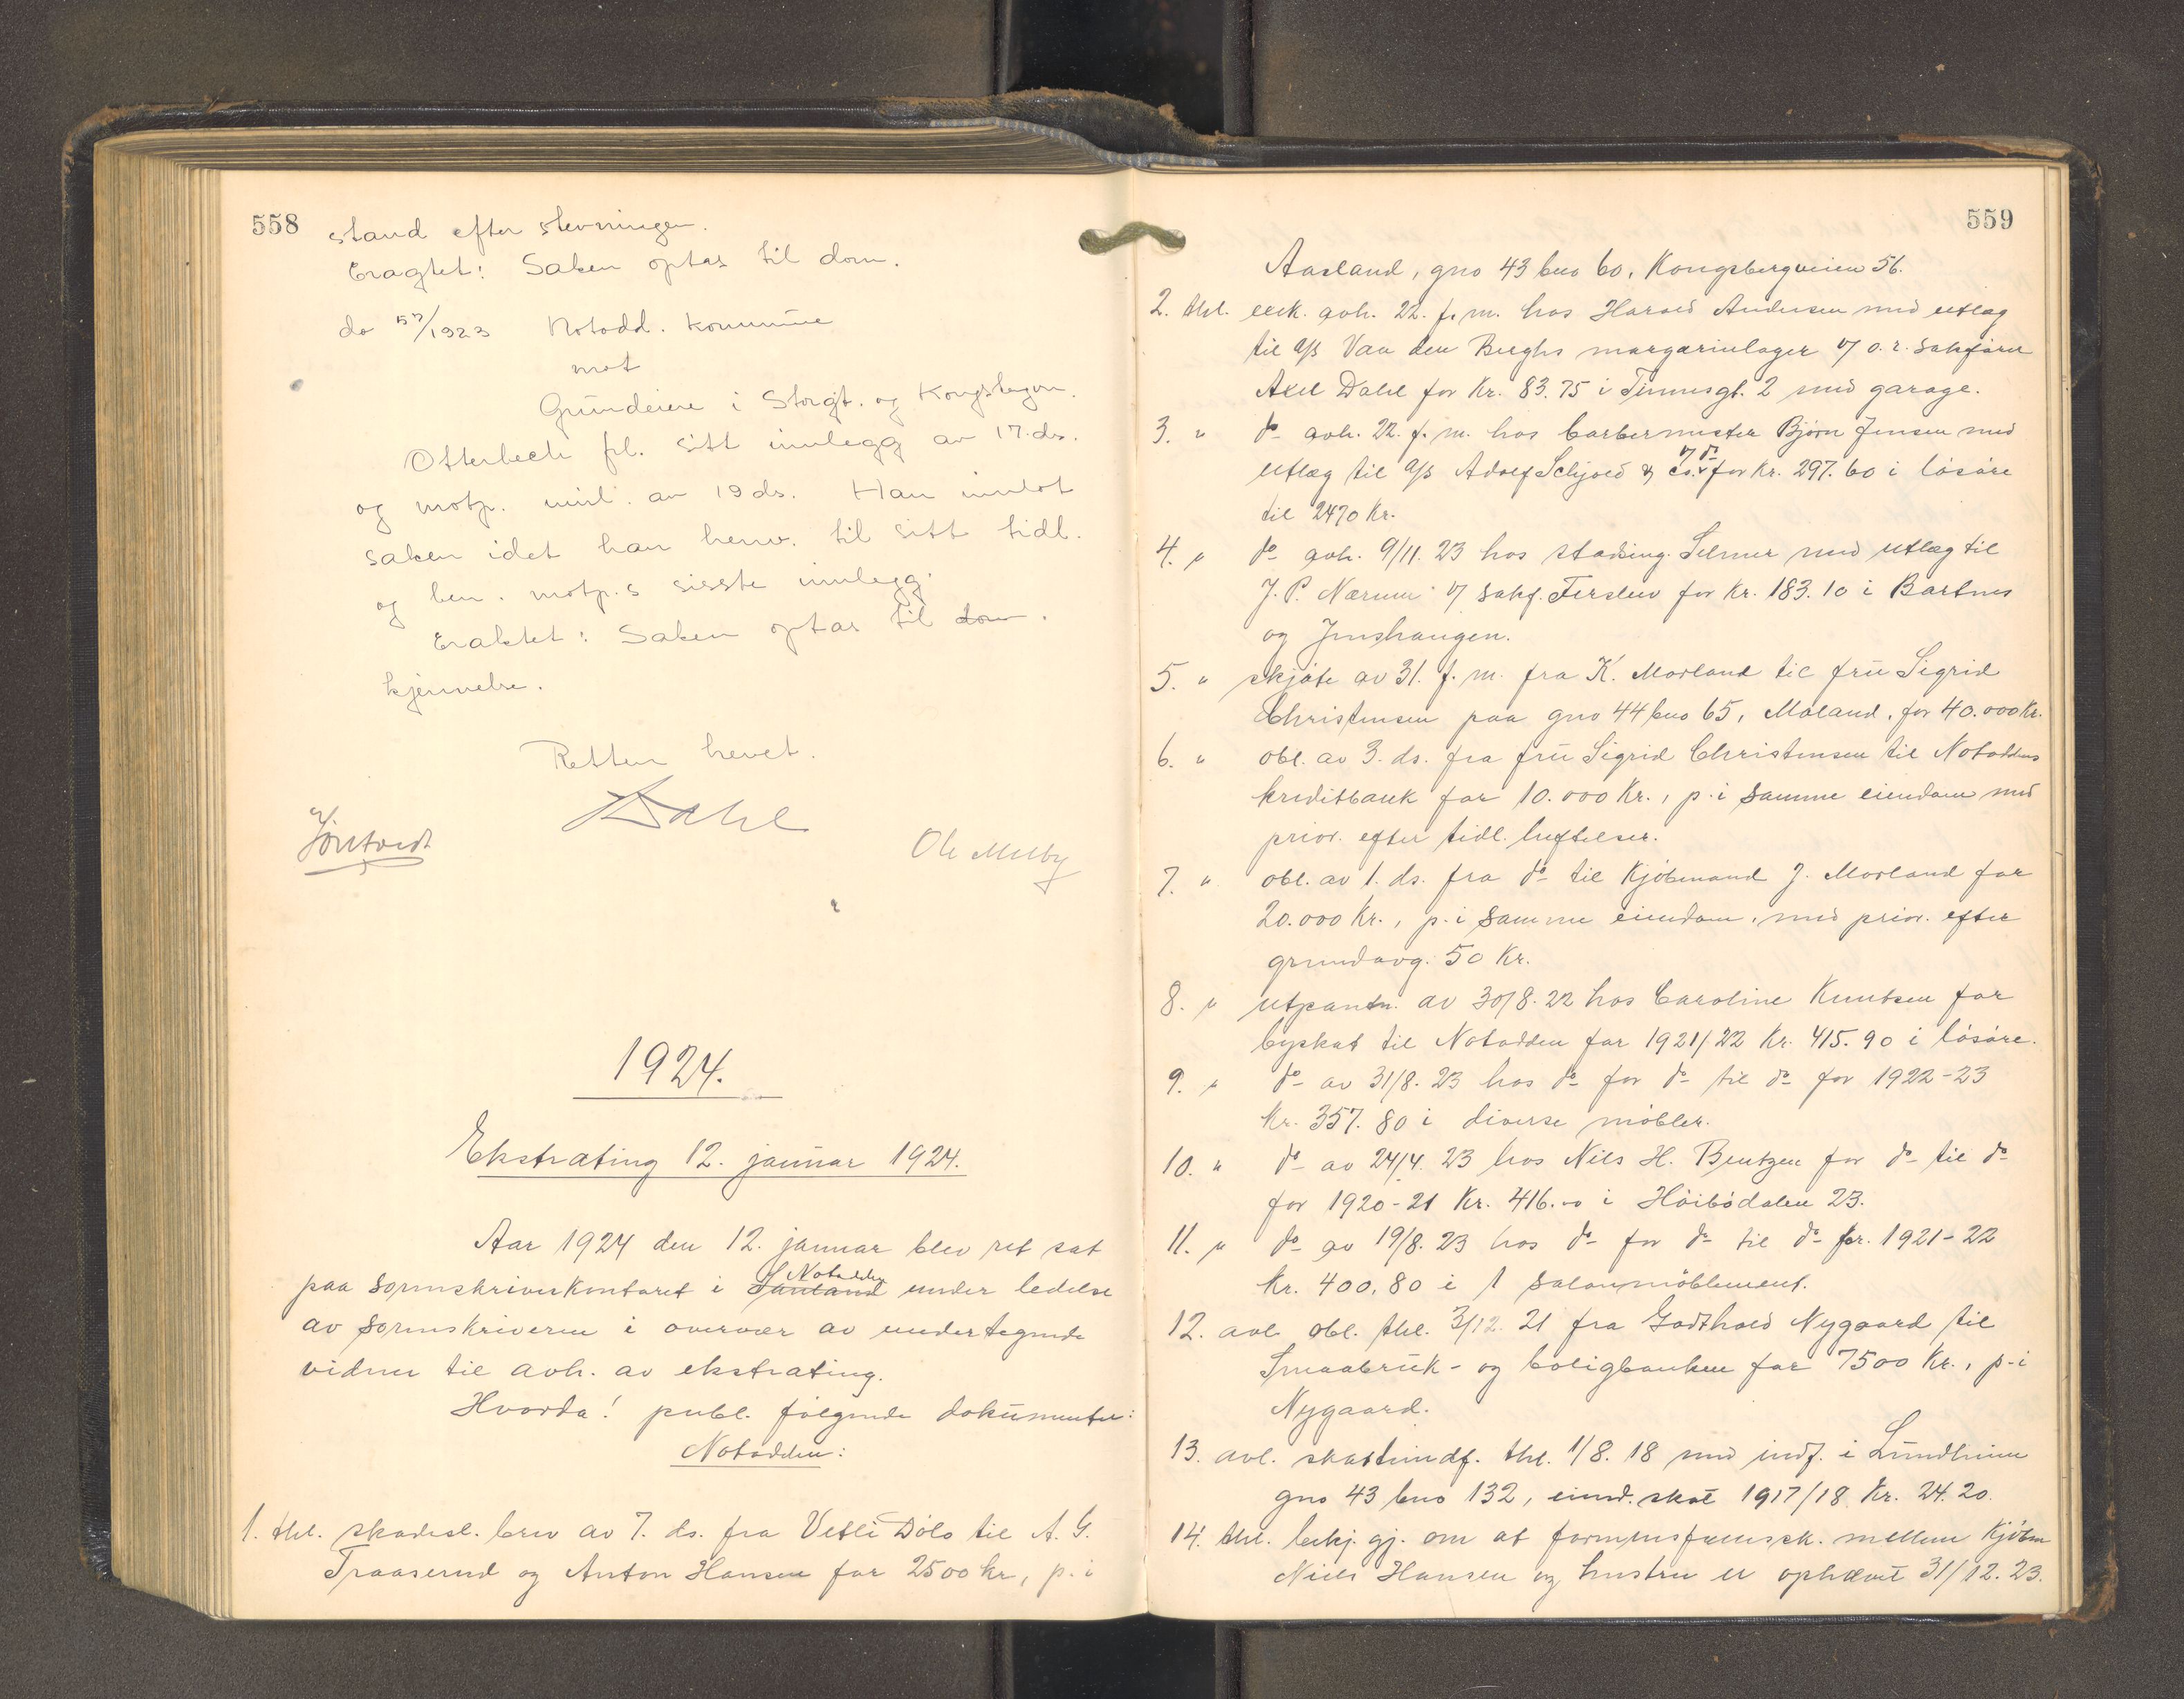 558
stand efter stevningen.
Eragtet: Saken optas til dom.
do 57/1923 Notodd. kommune
mot
Grundeiere i Storgt. og Kongsbgvn.
Otterbech frl. sitt innlegg av 17.ds.
og motp. innl. av 19 ds. Han innlot
saken idet han henv. til sitt tidl.
og ben. motp.s sisste innlegg.
Eraktet: Saken optas til dom.
kjennelse.
Retten hevet.
Dahl
Ole Melby
1924.
Ekstrating 12. januar 1924.
Aar 1924 den 12. januar blev ret sat
paa sorenskriverkontoret i Sauland Notodden under ledelse
av sorenskriveren i overvær av undertegnede
vidner til avh. av ekstrating.
Hvorda! publ. følgende dokumenter:
Notodden:
1. thl. skadesl. brev av 7. ds. fra Vetli Dølo til A. G.
Traaserud og Anton Hansen for 2500 kr, p. i
559
Aasland, gno 43 bno 60, Kongsbergveien 56.
2. thl. eek. avh. 22. f. m. hos Harald Andersen med utlæg
til A/S Van den Berghs margarinlager v/ o.r. sakfører
Axel Dahl for Kr. 83.75 i Tinnesgt. 2 med garage.
3. " do avh. 22. f. m. hos barbermester Bjørn Jensen med
utlæg til A/S Adolf Schjold & co. v/ do for Kr. 297.60 i løsøre
til 2470 Kr.
4. " do avh. 9/11. 23 hos stadsing. Selmer med utlæg til
J. P. Nærum v/ sakf. Ferslew for Kr. 183.10 i Bartnes
og Jenshaugen.
5. " skjøte av 31. f. m. fra K. Morland til fru Sigrid
Christensen paa gno 44 bno 65, Moland, for 40.000 Kr.
6. " obl. av 3. ds. fra fru Sigrid Christensen til Notoddens
kreditbank for 10.000 Kr., p. i samme eiendom med
prior. efter tidl. heftelser.
7. " obl. av 1. ds. fra do til kjøbmand J. Morland for
20.000 Kr., p. i samme eiendom, med prior. efter
grundavg. 50 Kr.
8. " utpantn. av 30/8. 22 hos Caroline Knutsen for
byskat til Notodden for 1921/22 Kr. 415.90 i løsøre.
9. " do av 31/8. 23 hos do for do til do for 1922-23
Kr. 357.80 i diverse møbler.
10. " do av 24/4. 23 hos Nils H. Bentzen for do til do
for 1920-21 Kr. 416.00 i Høibødalen 23.
11. " do av 19/8. 23 hos do for do til do for 1921-22
Kr. 400,80 i 1 salonmøblement.
12. avl. obl. thl. 3/12. 21 fra Godthold Nygaard til
Smaabruk- og boligbanken for 7500 Kr., p. i
Nygaard.
13. avl. skatteindf. thl. 1/8. 18 med indf. i Lundheim
gno 43 bno 132, eiend. skat 1917/18 Kr. 24.20.
14. thl. bekj. gj. om at formuesfællessk. mellem kjøbm
Niels Hansen og hustru er ophævet 31/12. 23.